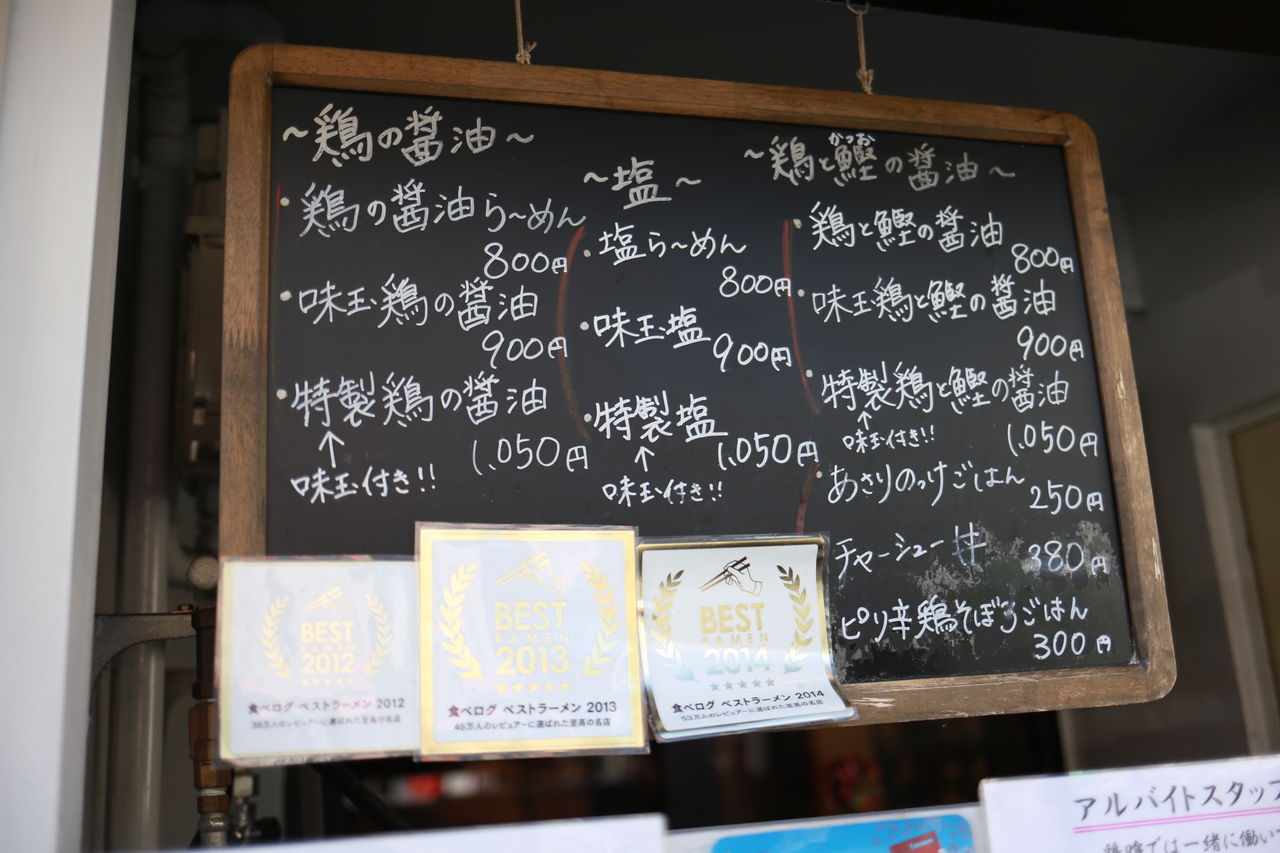 ～鶏の醤油～
・鶏の醤油ら～めん
800円
・味玉鶏の醤油
900円
・特製鶏の醤油
↑
1,050円
味玉付き!!
～塩～
・塩ら～めん
800円
・味玉塩
900円
・特製塩
↑
1,050円
味玉付き!!
かつお
～鶏と鰹の醤油～
・鶏と鰹の醤油
800円
・味玉鶏と鰹の醤油
900円
・特製鶏と鰹の醤油
↑
味玉付き!!
1,050円
・あさりのっけごはん
250円
チャーシュー丼
380円
ピリ辛鶏そぼろごはん
300円
BEST
RAMEN
2012
★★★★★
食べログ ベストラーメン 2012
38万人のレビュアーに選ばれた至高の名店
BEST
RAMEN
2013
★★★★★
食べログ ベストラーメン 2013
45万人のレビュアーに選ばれた至高の名店
BEST
RAMEN
2014
★★★★★
食べログ ベストラーメン 2014
53万人のレビュアーに選ばれた至高の名店
アルバイトスタッフ
では一緒に働い